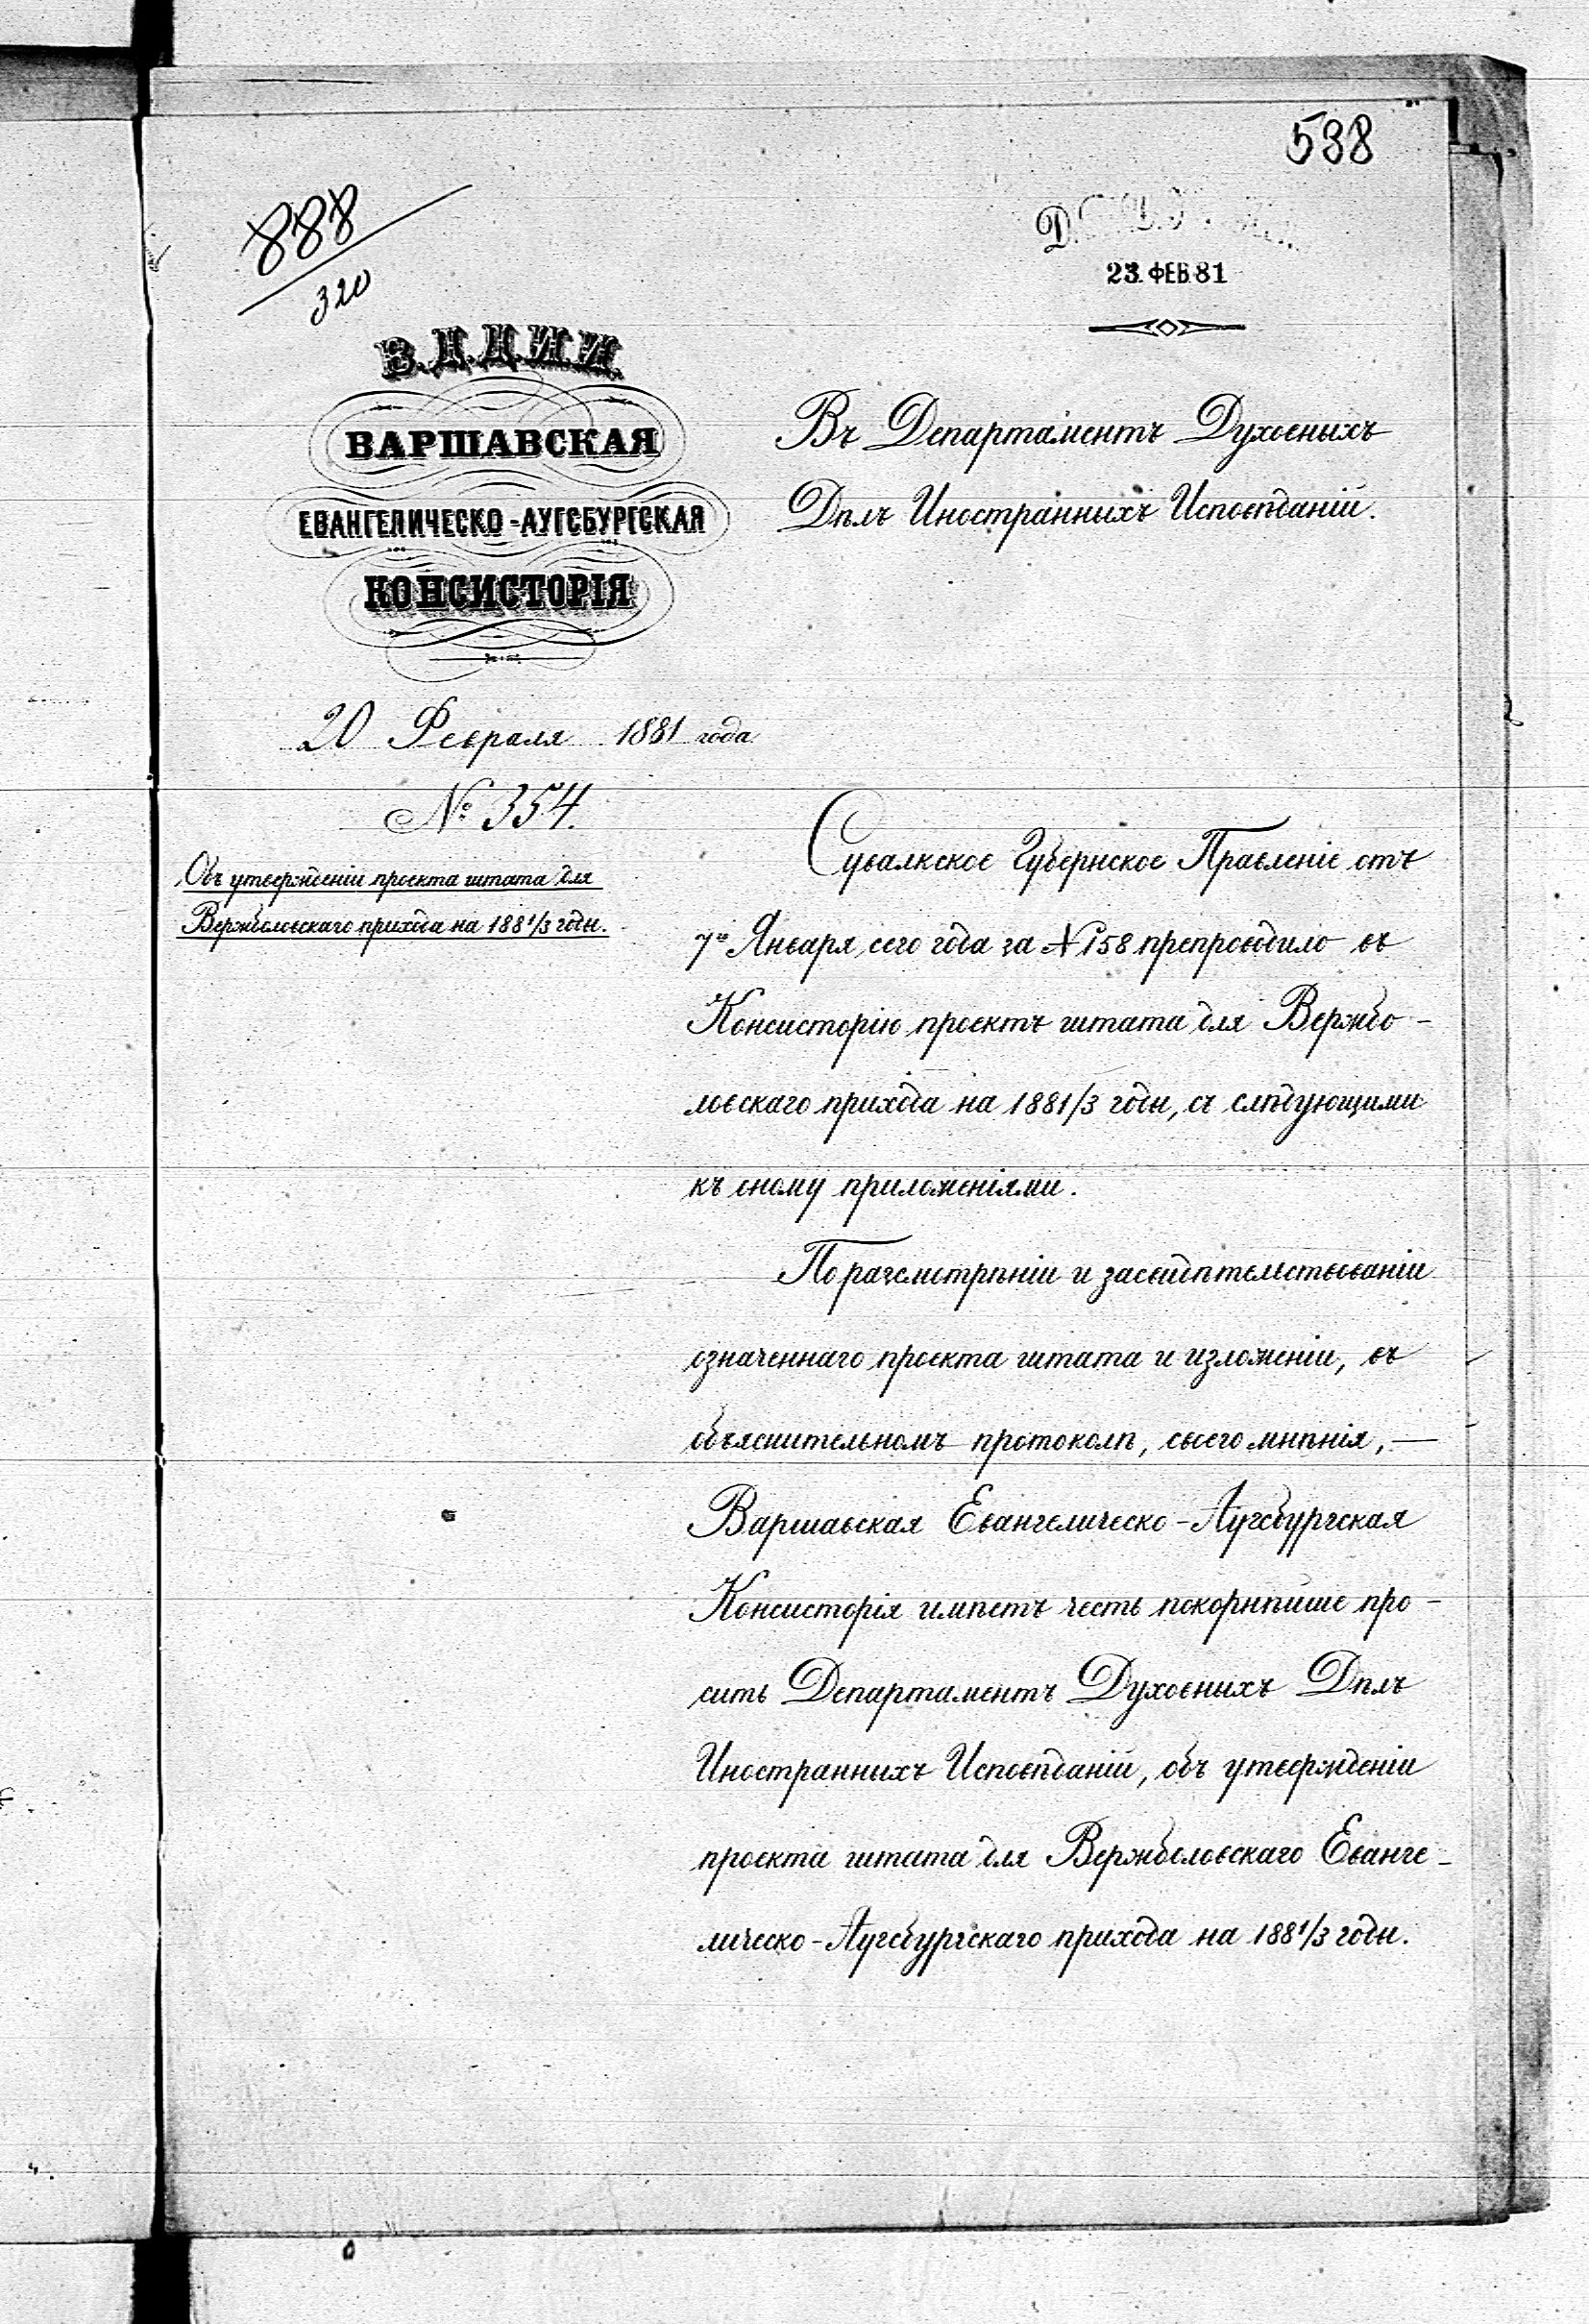 538
888
320
23 ФЕВ 81
В.Д.Д.И.И.
ВАРШАВСКАЯ
ЕВАНГЕЛИЧЕСКО-АУГСБУРГСКАЯ
КОНСИСТОРІЯ
20 Февраля 1881 года
№ 354.
Объ утвержденіи проекта штата для
Вержболовскаго прихода на 1881/3 годы.
Въ Департаментъ Духовныхъ
Дѣлъ Иностранныхъ Исповѣданій.
Сувалкское Губернское Правленіе отъ
7го Января сего года за № 158 препроводило въ
Консисторію проектъ штата для Вержбо-
ловскаго прихода на 1881/3 годы, съ слѣдующими
къ оному приложеніями.
По разсмотрѣніи и засвидѣтельствованіи
означеннаго проекта штата и изложеніи, въ
объяснительномъ протоколѣ, своего мнѣнія, —
Варшавская Евангелическо-Аугсбургская
Консисторія имѣетъ честь покорнѣйше про-
сить Департаментъ Духовныхъ Дѣлъ
Иностранныхъ Исповѣданій, объ утвержденіи
проекта штата для Вержболовскаго Еванге-
лическо-Аугсбургскаго прихода на 1881/3 годы.